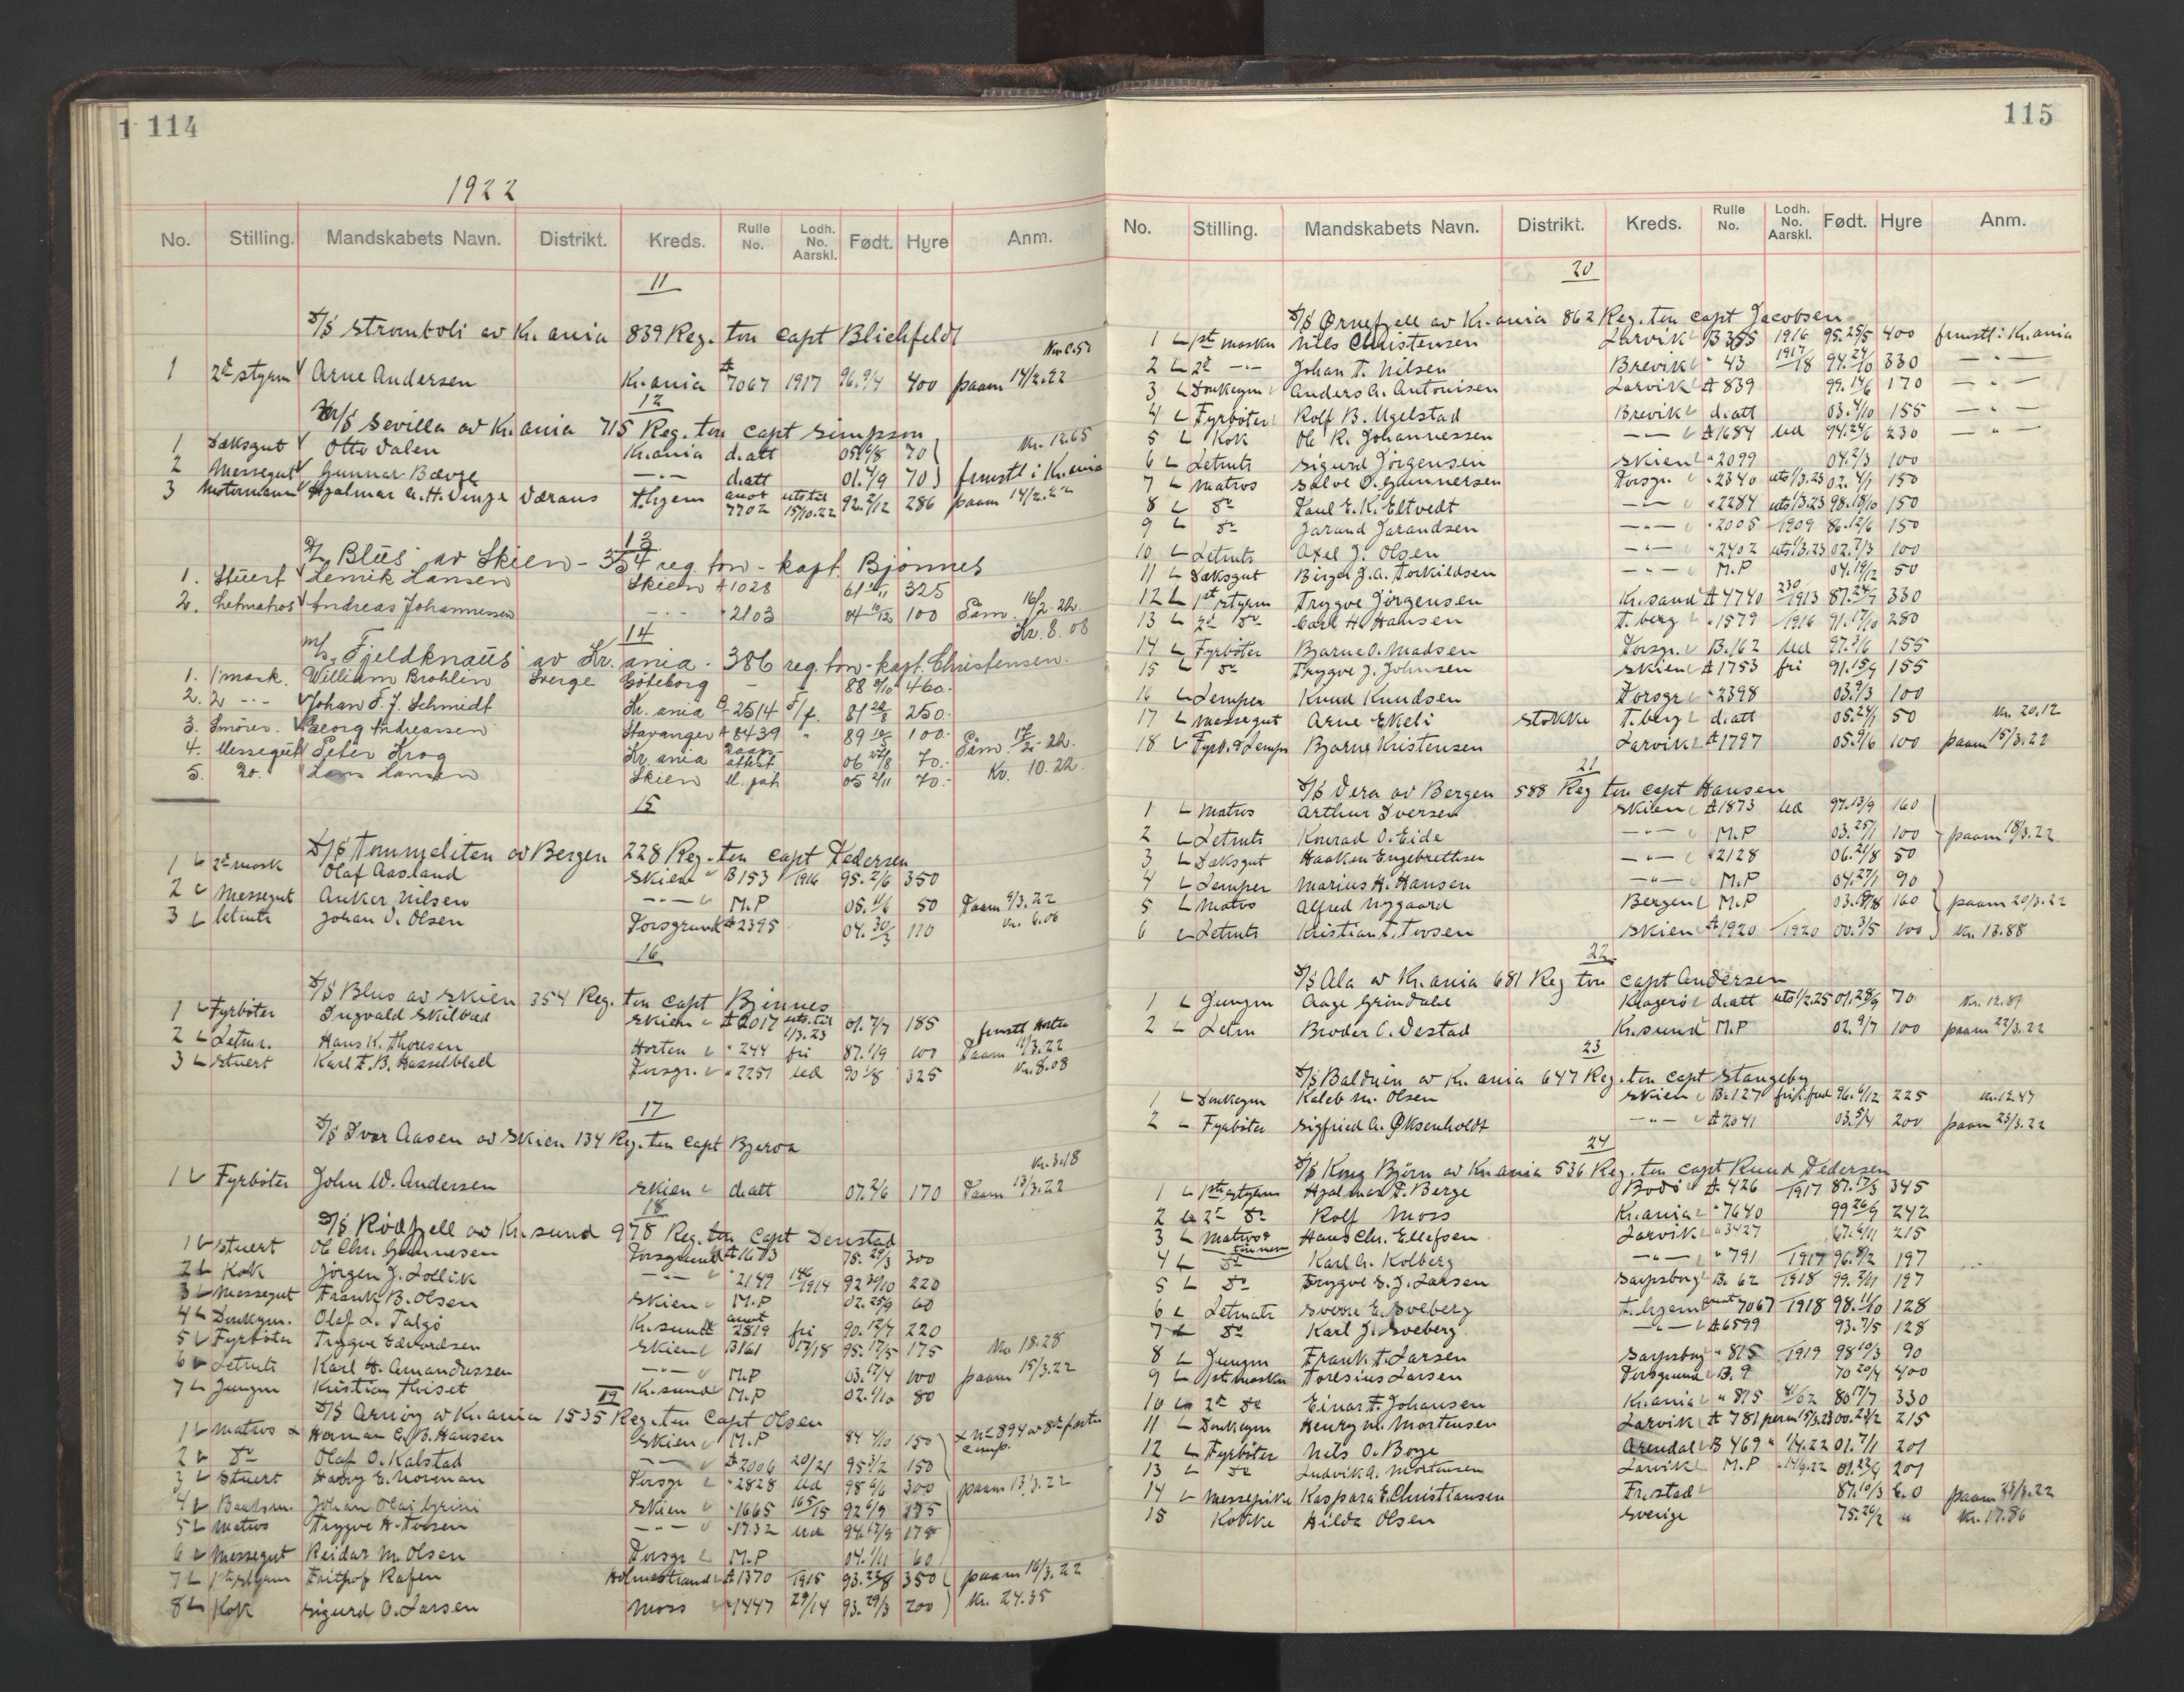 1 114
1922
No. Stilling. Mandskabets Navn. Distrikt. Kreds. Rulle No. Lodh. No. Aarskl. Født. Hyre Anm.
11
D/S Stromboli av Kr.ania 839 Reg. ton Capt Blichfeldt
Kr. 6.50
1 2d styrm Arne Andersen Kr.ania A 7067 1917 96.9/4 400 paam 14/2.22
12
M/S Sevilla av Kr.ania 715 Reg. ton Capt Simpson
1 Dæksgut Otto Dalen Kr.ania d.att 05.6/8 70 Kr. 12.65
2 Messegut Gunnar Bævre -"- d.att 01.4/9 70 frmstl i Kr.ania
3 Motormann Hjalmar A.H. Vinge Værans T.hjem anot 7702 uts til 15/10.22 92.2/12 286 paam 14/2.22
13
D/S Blus av Skien - 354 reg. ton - kapt. Bjønnes
1. Stuert Henrik Hansen Skien A 1028 61 11/11 325
2. Letmatros Andreas Johannessen -"- " 2103 04 10/12 100 Påm. 16/2.22.
Kr. 8.08
14
M/S Fjeldknaus av Kr.ania. 386 reg. ton - kapt. Christensen.
1. 1 mask. William Brohlin Sverge Göteborg - - 88 9/10 460.-
2. 2 -"- Johan F. J. Schmidt Kr.ania B 2514 F/f. 81 28/8 250.-
3. Smører. Georg Andreassen Stavanger A 8439 " 89 10/5 100.-
4. Messegut Peter Krog Kr.ania Daaps-attest 06 27/8 70.- Påm. 17/2.-22.
5. Do. Lars Hansen Skien M. pat 05 2/11 70.- Kr. 10.22.
15
D/S Tommeliten av Bergen 228 Reg. ton Capt Pedersen
1 2d mask Olaf Aasland Skien B 153 1916 95.2/6 350
2 Messegut Anker Nilsen -"- M.P 05.4/6 50 Paam 9/3.22
3 Letmtr Johan V. Olsen Porsgrund A 2395 04.30/3 110 Kr. 6.06
16
D/S Blus av Skien 354 Reg. ton Capt Bjønnes
1 Fyrbøter Ingvald Skilbred Skien A 2017 uts. til 1/3.23 01.7/7 185
2 Letm. Hans K. Thoresen Horten " 244 fri 87.1/9 100 frmstl Horten Paam 11/3.22
3 Stuert Karl F.B. Hasselblad Porsgr. " 2251 Ud 90 1/8 325 Kr. 8.08
17
D/S Ivar Aasen av Skien 134 Reg. ton Capt Bjerva
Kr. 3.18
1 Fyrbøter John W. Andersen Skien d.att 07.2/6 170 Paam 13/3.22
18
D/S Rødfjell av Kr.sund 978 Reg. ton Capt Denstad
1 Stuert Ol. Chr. Gunnesen Porsgrund A 1613 75.29/3 300
2 Kok Jörgen J. Lollik -"- " 2149 146/1914 92 30/10 220
3 Messegut Frank B. Olsen Skien M.P 02.25/9 60
4 Donkeym. Olaf L. Talgø Kr.sund anot 2819 fri 90.12/7 220
5 Fyrbøter Trygve Edvardsen Skien B 161 17/18 95.17/5 175 Kr. 18.28
6 Letmtr Karl H. Amandussen -"- M.P 03.17/4 100 paam 15/3.22
7 Jungm Kristian Hviset Kr.sund M.P 02.1/10 80
19
D/S Arnöy av Kr.ania 1535 Reg. ton Capt Olsen
1 Matros x Herman E. B. Hansen Skien M.P 84 4/10 150 x No 894 av 8de forts comp.
2 Do Olaf O. Kalstad -"- A 2006 20/21 95 3/2 150
3 Stuert Harry E. Norman Porsgr " 2828 Ud 98 6/6 300 paam 13/3.22
4 Baadsm. Johan Olai Grini Skien " 1665 165/15 92 6/9 175
5 Matros Trygve H. Tovsen -"- " 1732 Ud 94.17/9 178
6 Messegut Reidar M. Olsen Porsgr M.P 04.1/11 60
7 1ste styrm Frithof Rafen Holmestrand A 1370 1915 93.23/8 350 paam 16/3.22
8 Kok Sigurd O. Larsen Moss " 1447 29/14 93.29/3 200 Kr. 24.35
115
No. Stilling. Mandskabets Navn. Distrikt. Kreds. Rulle No. Lodh. No. Aarskl. Født. Hyre Anm.
20
D/S Ørnefjell av Kr.ania 862 Reg. ton Capt Jacobsen
1 1st maskn Nils Christensen Larvik B 355 1916 95.25/5 400 frmstl: Kr.ania
2 2d -"- Johan T. Nilsen Brevik " 43 1917/18 94.24/10 330 -"-
3 Donkeym Anders A. Antonisen Larvik A 839 99.14/6 170 -"-
4 Fyrbøter Rolf B. Ugelstad Brevik d.att 03.4/10 155 -"-
5 Kok Ole K. Johannessen -"- A 1684 Ud 94.24/6 230 -"-
6 Letmtr Sigurd Jörgensen Skien " 2099 04.2/3 100
7 Matros Salve O. Gunnersen Porsgr. " 2340 uts 1/3.23 02.4/1 150
8 Do Paul E. K. Eltvedt -"- " 2284 uts 1/3.23 98.18/10 150
9 Do Jarand Jarandsen -"- " 2005 1909 86.12/6 150
10 Letmtr Axel J. Olsen -"- " 2402 uts 1/3.23 02.7/3 100
11 Dæksgut Birger J.A. Torkildsen -"- M.P 04.19/12 50
12 1st styrm Trygve Jörgensen Kr.sand A 4740 230/1913 87.24/7 330
13 2d Do Carl H. Hansen T.berg " 1579 1916 91.17/10 280
14 Fyrbøter Bjarne O. Madsen Porsgr. B. 162 Ud 97.3/6 155
15 Do Trygve J. Johnsen Skien A 1753 fri 91.15/9 155
16 Lemper Knud Knudsen Porsgr " 2398 03.9/3 100
17 Messegut Arne Ekeli Stokke T.berg d.att 05.24/1 50 Kr. 20.12
18 Fyrb. & Lemper Bjarne Kristensen Larvik A 1797 05.9/6 100 paam 15/3.22
21
D/S Vera av Bergen 588 Reg ton Capt Hansen
1 Matros Arthur Iversen Skien A 1873 Ud 97.13/9 160
2 Letmtr Konrad O. Eide -"- M.P 03.25/1 100 paam 18/3.22
3 Dæksgut Haakon Engebrettsen -"- " 2128 06.21/8 50
4 Lemper Marius H. Hansen -"- M.P 04.27/1 90
5 Matros Alfred Nygaard Bergen M.P 03.19/8 160 paam 20/3.22
6 Letmtr Kristian T. Tovsen Skien A 1920 1920 00.3/5 100 Kr. 13.88
22
D/S Ala av Kr.ania 681 Reg ton Capt Andersen
1 Jungm Aage Grindahl Kragerø d.att uts 1/2.25 01.28/9 70 Kr. 12.81
2 Letm Broder C. Vestad Kr.sund M.P 02.9/7 100 paam 22/3.22
23
D/S Balduin av Kr.ania 647 Reg. ton Capt Stangeby
1 Donkeym Kaleb M. Olsen Skien B. 127 frik.fnd 96.6/12 225 Kr. 12.47
2 Fyrbøter Sigfried A. Øksenholdt -"- A 2041 03.5/4 200 paam 23/3.22
24
D/S Kong Bjørn av Kr.ania 536 Reg. ton Capt Ruud Pedersen
1 1ste styrm Hjalmar F. Berge Bodö A. 426 1917 87.17/3 345
2 2n Do Rolf Moss Kr.ania " 7640 99 26/9 242
3 Matros & tømmerm Hans Chr. Ellefsen Larvik " 3427 67.6/11 215
4 Do Karl A. Kolberg -"- " 791 1917 96.8/2 197
5 Do Trygve S. J. Larsen Sarpsborg B. 62 1918 99.2/11 197
6 Letmatr Sverre E. Sveberg T.hjem anot 7067 1918 98.11/10 128
7 Do Karl J. Sveberg -"- A 6599 93.7/5 128
8 Jungm Frank T. Larsen Sarpsborg " 815 1919 98 10/3 90
9 1st maskn Toresius Larsen Porsgrund B. 9 70 20/4 400
10 2d Do Einar F. Johansen Kr.ania " 875 41/02 80 17/7 330
11 Donkeym Henry M. Mortensen Larvik A 781 perm 15/3.23 00.23/2 215
12 Fyrbøter Nils O. Boge Arendal B 469 " 1/4.22 01.7/11 201
13 Do Ludvik A. Mortensen Larvik M.P " 14/9.22 01.23/9 201
14 Messepike Kaspara E. Christiansen Fr.stad 87.10/3 60 paam 23/3.22
15 Kokke Hilda Olsen Sverige 75.26/2 " Kr. 17.86